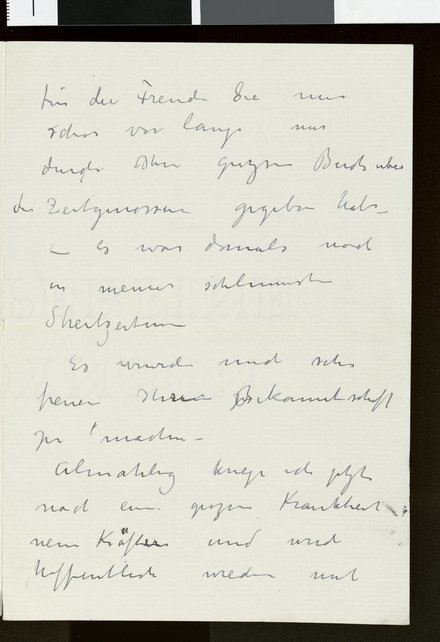 für die Freude die mir
schon vor lange mir
durch Ihr grosses Buch über
die Zeitgenossen gegeben habe
– es war damals noch
in meiner schlimmsten
Streitzeiten
Es würde mich sehr
freuen Ihre Bekanntschaft
zu machen –
Almählig kriege ich jetzt
nach einer grossen Krankheit
neue Kräfte und werde
hoffentlich wieder mit